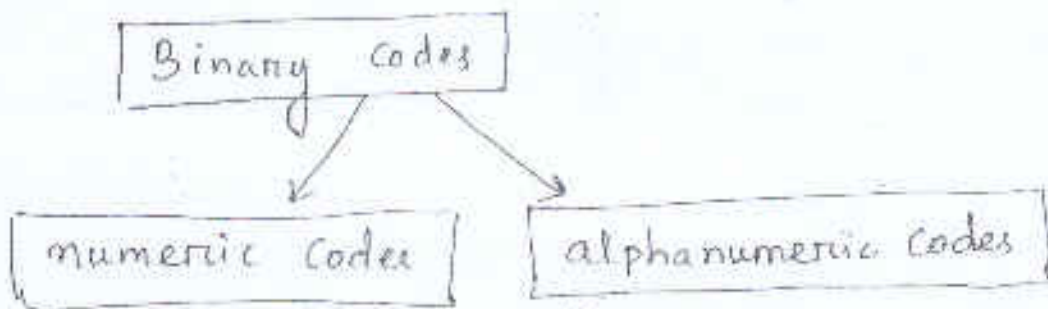 Binary codes
numeric codes
alphanumeric codes